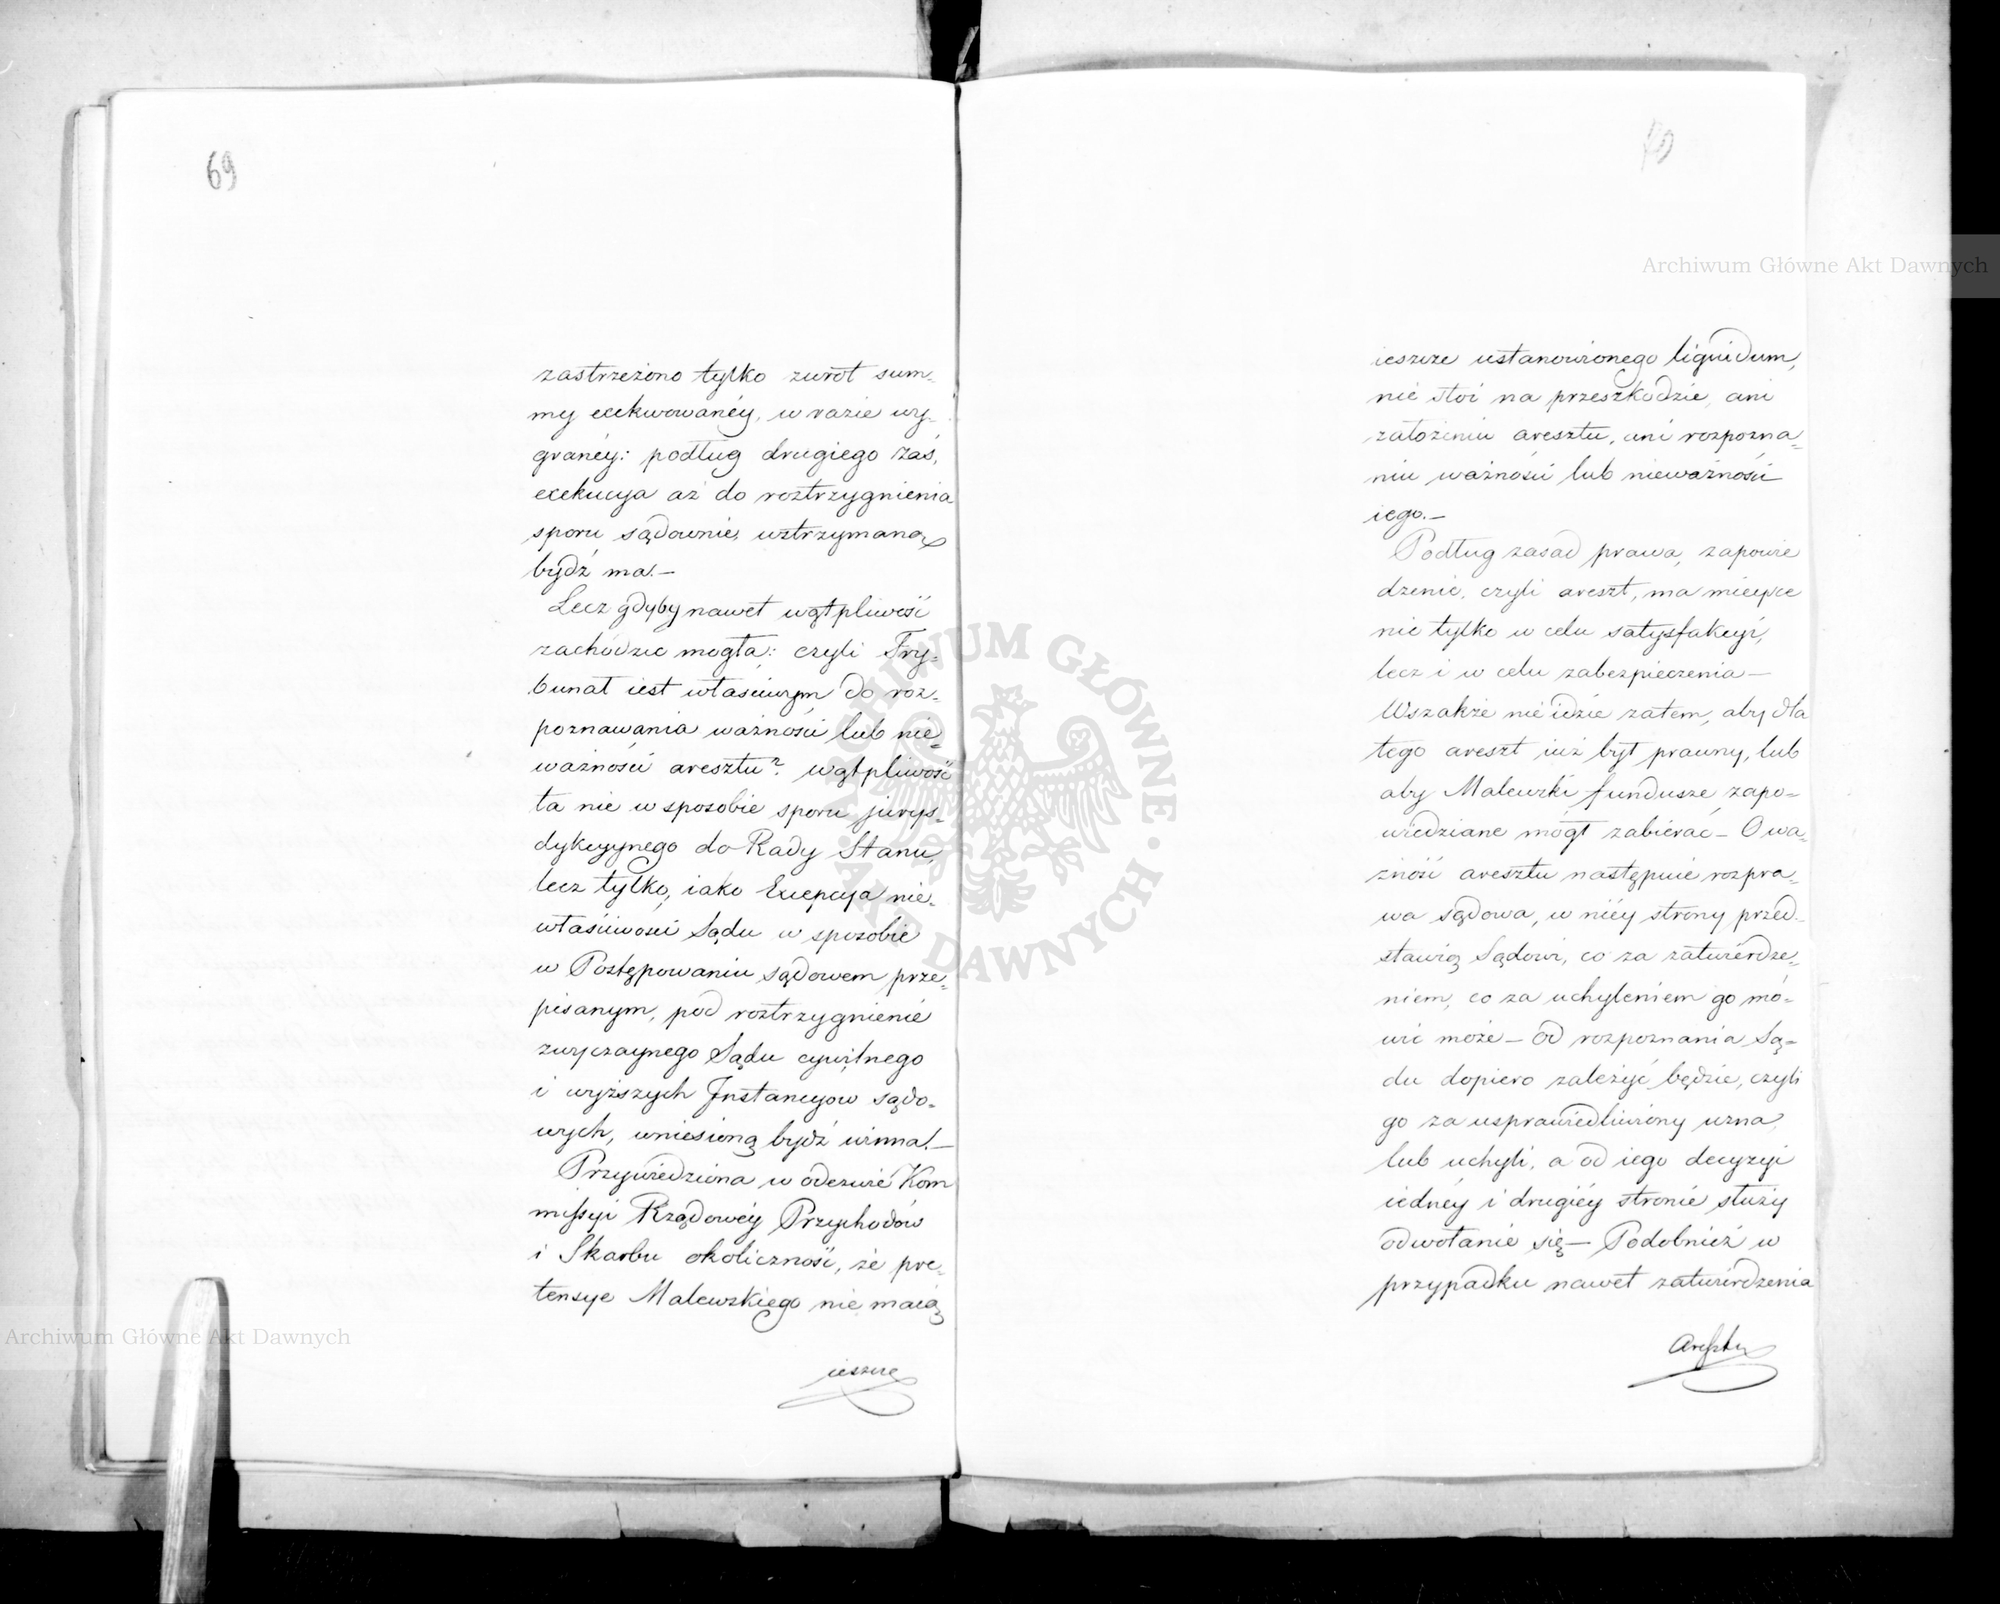 69
zastrzeżono tylko zwrot sum-
my exekwowanéy, w razie wy-
granéy: podług drugiego zaś,
exekucya aż do roztrzygnienia
sporu sądownie, wstrzymaną
bydź ma.—
Lecz gdyby nawet wątpliwość
zachodzić mogła: czyli Try-
bunał iest właściwym do roz-
poznawania ważności lub nie-
ważności aresztu? wątpliwość
ta nie w sposobie sporu jurys-
dykcyynego do Rady Stanu,
lecz tylko, iako Excepcya nie-
właściwości Sądu w sposobie
w Postępowaniu sądowem prze-
pisanym, pod roztrzygnienie
zwyczaynego Sądu cywilnego
i wyższych Instancyow sądo-
wych, wniesioną bydź winna.—
Przywiedziona w odezwie Kom
missyi Rządowéy Przychodów
i Skarbu okoliczność, że pre-
tensye Malewskiego nie maią
ieszcze
70
ieszcze ustanowionego liquidum,
nie stoi na przeszkodzie, ani
założeniu aresztu, ani rozpozna-
niu ważności lub nieważności
iego.—
Podług zasad prawa, zapowie
dzenie, czyli areszt, ma mieysce
nie tylko w celu satysfakcyi,
lecz i w celu zabezpieczenia—
Wszakże nie idzie zatem, aby dla
tego areszt iuż był prawny, lub
aby Malewski fundusze zapo-
wiedziane mógł zabierać— O wa-
żność aresztu następuie rozpra-
wa sądowa, w niéy strony przed-
stawią Sądowi, co za zatwierdze-
niem, co za uchyleniem go mó-
wić może— od rozpoznania Są-
du dopiero zależyć będzie, czyli
go za usprawiedliwiony uzna,
lub uchyli, a od iego decyzyi
iednéy i drugiéy stronie służy
odwołanie się— Podobnież w
przypadku nawet zatwierdzenia
Aresztu
Archiwum Główne Akt Dawnych
Archiwum Główne Akt Dawnych
ARCHIWUM GŁÓWNE · AKT DAWNYCH ·